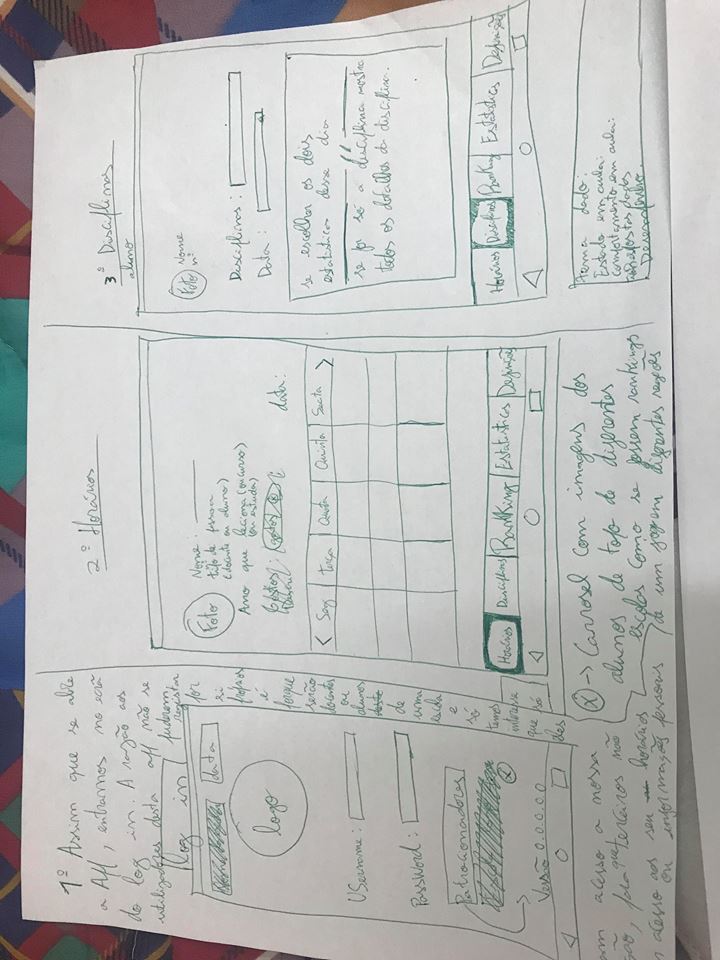 1º Assim que se abre
a App, entramos no ecrã
do log in. A razão aos
utilizadores desta app não se
puderem
registar
por
si
próprios
é
porque
serão
docentes
ou
alunos
de
uma
escola
e
só
temos
interesse
que só
eles
acesso a nossa
para que terceiros não
acesso aos seu horários
ou informações pessoais
log in
data
logo
Username :
Password :
Patrocionadores
x
Versão 0.0.0.0
2º Horários
Foto
Nome :
tipo de pessoa
(docente ou aluno)
Ano que leciona (ou curso)
(ou estuda)
Gostos : gostos x
data :
< Seg terça Quarta Quinta Sexta >
Horários Disciplinas Ranking Estatisticas Definições
x -> Carrosel com imagens dos
alunos de topo de diferentes
escolas como se fossem rankings
de um jogo em diferentes regiões
3º Disciplinas
aluno
Foto Nome
nº
Disciplinas :
Data :
se escolher os dois
estatistica desse dia
//
se for só a disciplina mostra
todos os detalhes da disciplina.
Horários Disciplinas Ranking Estatisticas Definiçõ
Tema dado:
Estado em aula:
Comportamento em aula:
Respostas dadas
Desempenho